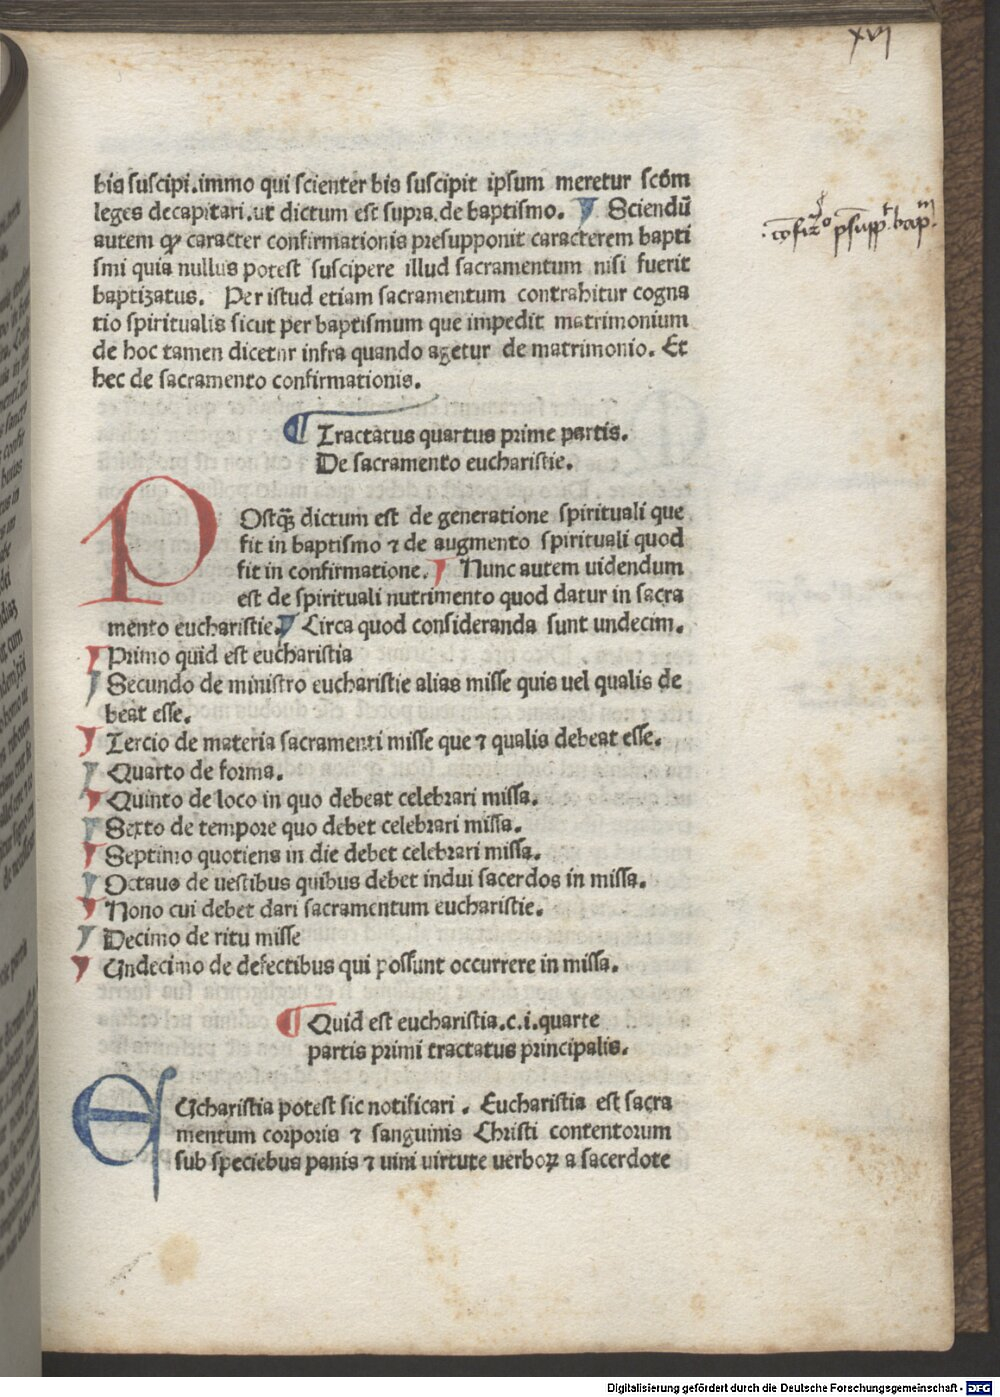 xvj
bis suscipi.immo qui scienter bis suscipit ipsum meretur scõm
leges decapitari.ut dictum est supra.de baptismo. ¶ Sciendũ
autem ꝙ caracter confirmationis presupponit caracterem bapti
smi quia nullus potest suscipere illud sacramentum nisi fuerit
baptizatus. Per istud etiam sacramentum contrahitur cogna
tio spiritualis sicut per baptismum que impedit matrimonium
de hoc tamen dicetur infra quando agetur de matrimonio. Et
hec de sacramento confirmationis.
¶ Tractatus quartus prime partis.
De sacramento eucharistie.
POstꝗ̃ dictum est de generatione spirituali que
fit in baptismo ⁊ de augmento spirituali quod
fit in confirmatione. ¶ Nunc autem uidendum
est de spirituali nutrimento quod datur in sacra
mento eucharistie. ¶ Circa quod consideranda sunt undecim.
¶ Primo quid est eucharistia
¶ Secundo de ministro eucharistie alias misse quis uel qualis de
beat esse.
¶ Tercio de materia sacramenti misse que ⁊ qualis debeat esse.
¶ Quarto de forma.
¶ Quinto de loco in quo debeat celebrari missa.
¶ Sexto de tempore quo debet celebrari missa.
¶ Septimo quotiens in die debet celebrari missa.
¶ Octauo de uestibus quibus debet indui sacerdos in missa.
¶ Nono cui debet dari sacramentum eucharistie.
¶ Decimo de ritu misse
¶ Undecimo de defectibus qui possunt occurrere in missa.
¶ Quid est eucharistia.c.i.quarte
partis primi tractatus principalis.
EUcharistia potest sic notificari. Eucharistia est sacra
mentum corporis ⁊ sanguinis Christi contentorum
sub speciebus panis ⁊ uini uirtute uerboꝝ a sacerdote
Digitalisierung gefördert durch die Deutsche Forschungsgemeinschaft - DFG